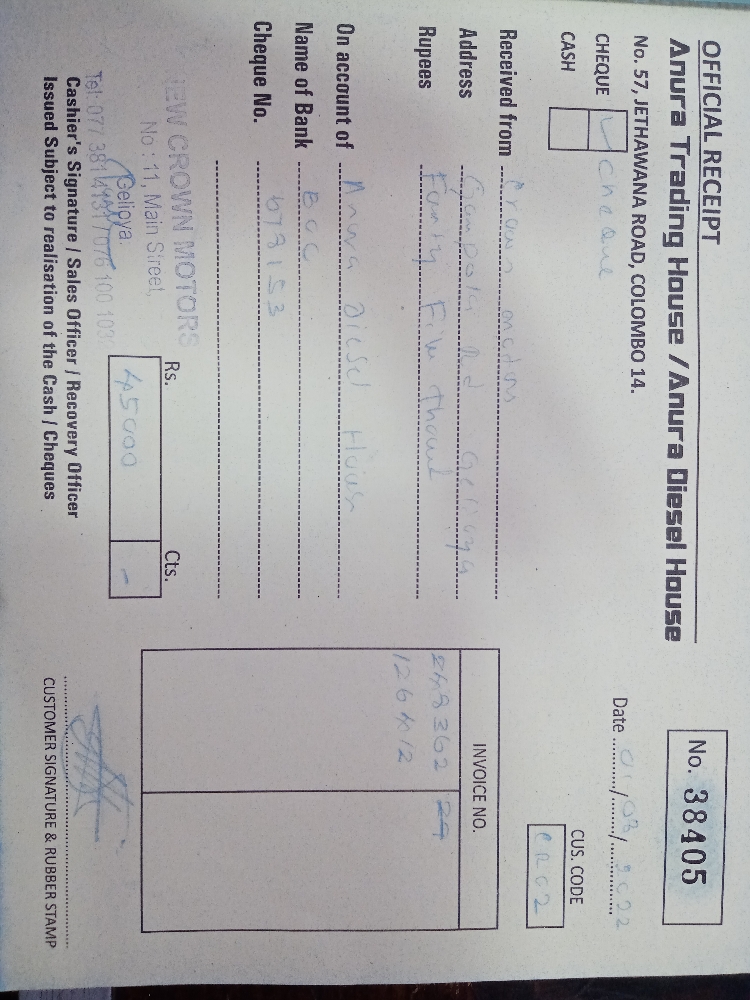 OFFICIAL RECEIPT
Anura Trading House / Anura Diesel House
No. 57, JETHAWANA ROAD, COLOMBO 14.
No. 38405
CHEQUE cheque
CASH
Date 01/08/2022
CUS. CODE
CR02
Received from Crown motors
Address Gampola Rd Gelioya
Rupees Fourty Five
On account of Anura Diesel House
Name of Bank BOC
Cheque No. 678153
INVOICE NO.
NEW CROWN MOTORS
No : 11, Main Street,
Gelioya.
Tel: 077
Rs. Cts.
45000 -
Cashier's Signature / Sales Officer / Recovery Officer
Issued Subject to realisation of the Cash / Cheques
CUSTOMER SIGNATURE & RUBBER STAMP